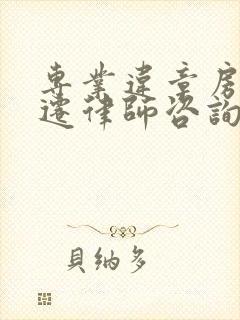 專業違章房
遷律師咨詢
貝納多